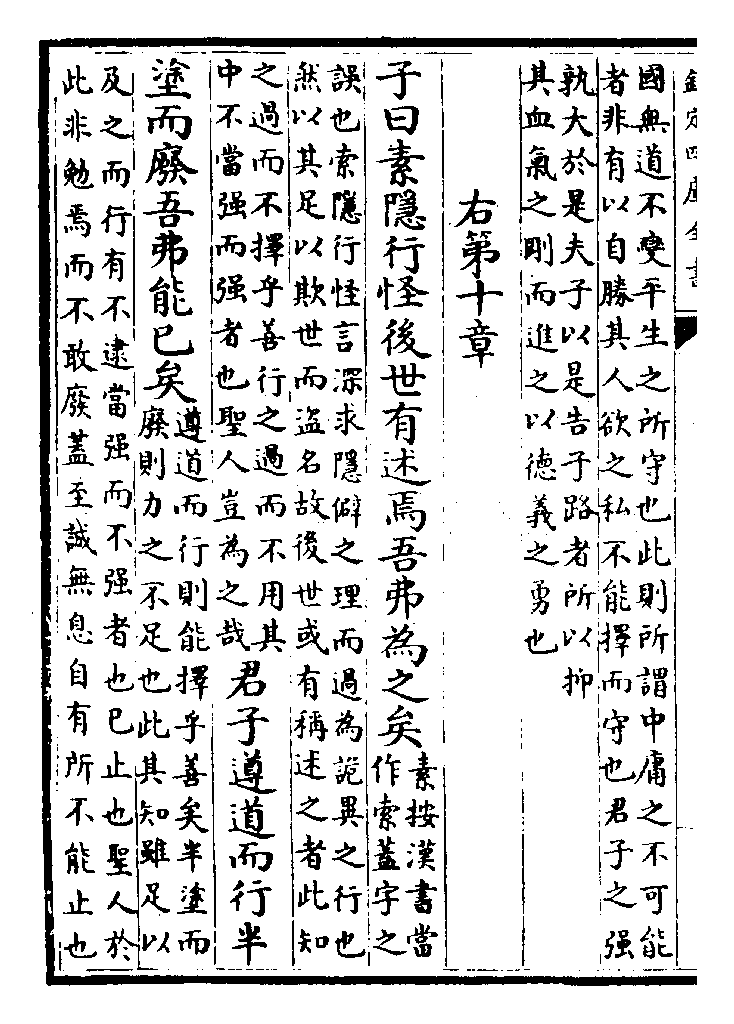 欽定四庫全書
國無道不變平生之所守也此則所謂中庸之不可能
者非有以自勝其人欲之私不能擇而守也君子之强
孰大於是夫子以是告子路者所以抑
其血氣之剛而進之以德義之勇也
右第十章
子曰素隱行怪後世有述焉吾弗為之矣
素按漢書當
作索蓋字之
誤也索隱行怪言深求隱僻之理而過為詭異之行也
然以其足以欺世而盜名故後世或有稱述之者此知
之過而不擇乎善行之過而不用其
中不當强而强者也聖人豈為之哉
君子遵道而行半
塗而廢吾弗能已矣
遵道而行則能擇乎善矣半塗而
廢則力之不足也此其知雖足以
及之而行有不逮當强而不强者也已止也聖人於
此非勉焉而不敢廢蓋至誠無息自有所不能止也